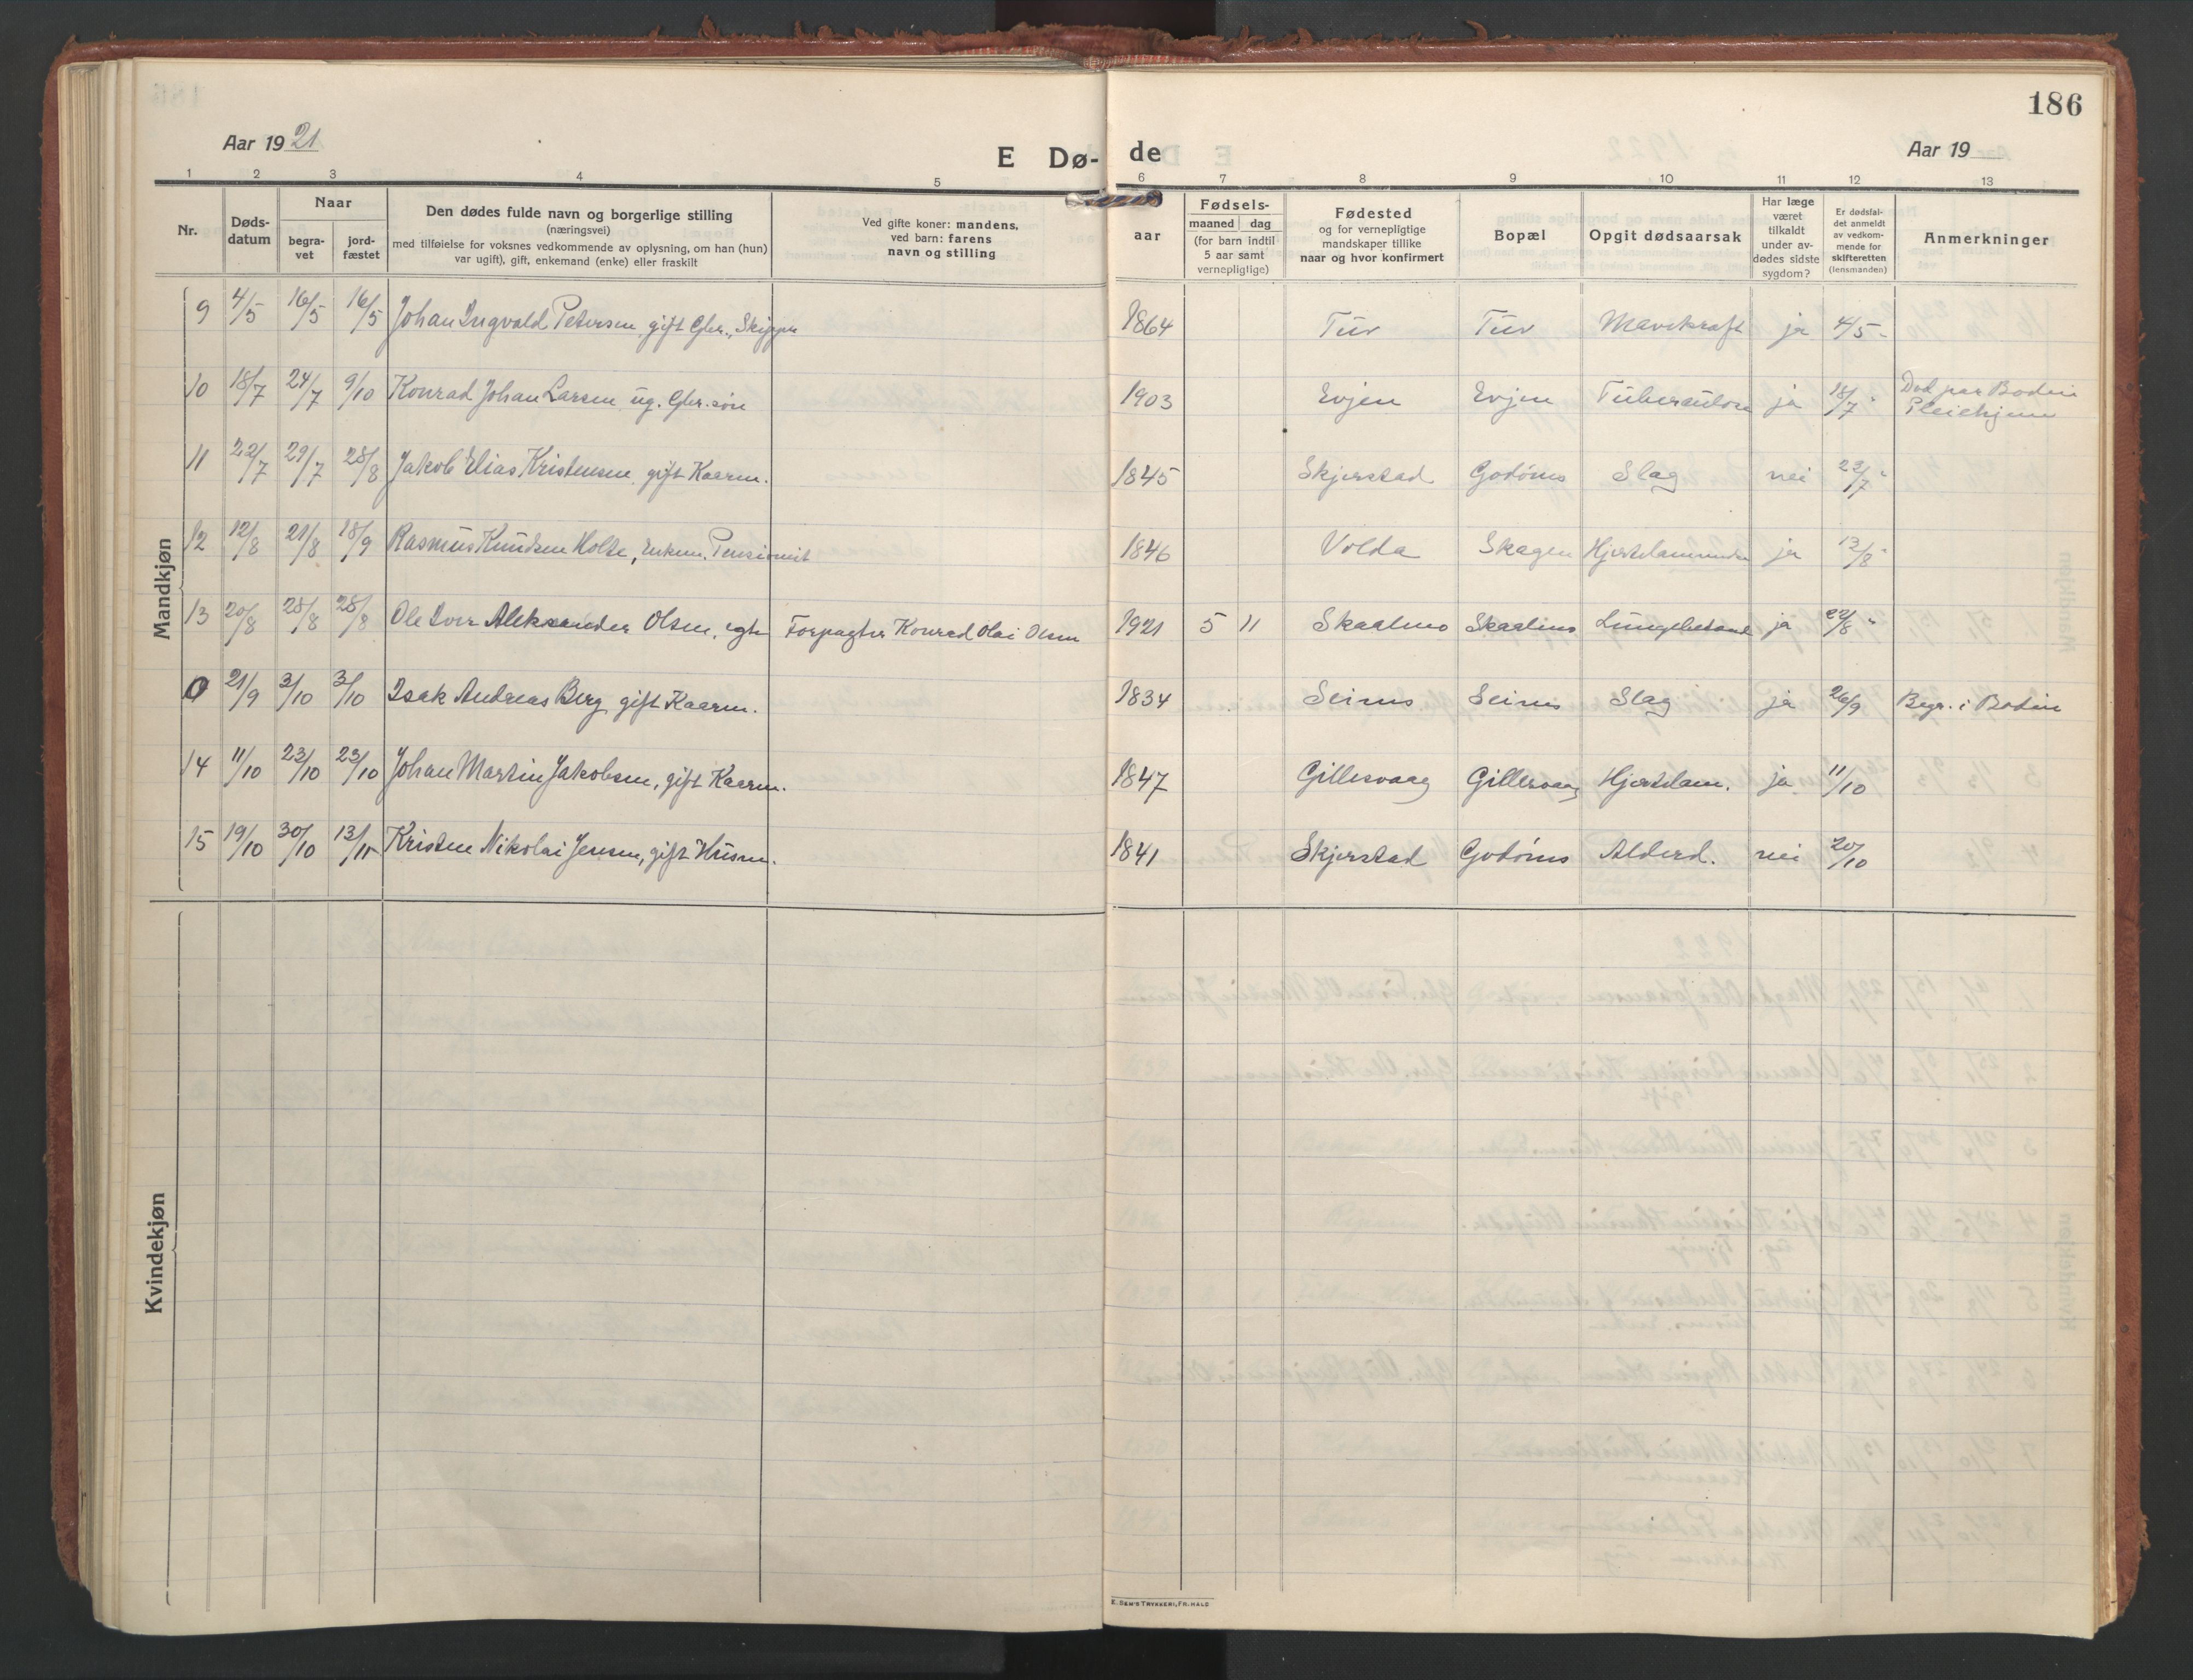 186
Aar 1921
E Dø-
de
Aar 19
1 2 3 4 5 6 7 8 9 10 11 12 13
Nr.
Døds-
datum
Naar
begra-
vet
jord-
fæstet
Den dødes fulde navn og borgerlige stilling
(næringsvei)
med tilføielse for voksnes vedkommende av oplysning, om han (hun)
var ugift), gift, enkemand (enke) eller fraskilt
Ved gifte koner: mandens,
ved barn: farens
navn og stilling
Fødsels-
aar
maaned dag
(for barn indtil
5 aar samt
vernepligtige)
Fødested
og for vernepligtige
mandskaper tillike
naar og hvor konfirmert
Bopæl
Opgit dødsaarsak
Har læge
været
tilkaldt
under av-
dødes sidste
sygdom?
Er dødsfal-
det anmeldt
av vedkom-
mende for
skifteretten
(lensmanden)
Anmerkninger
Mandkjøn
9 4/5 16/5 16/5 Johan Ingvald Petersen, gift Gbr., Skipper 1864 Tuv Tuv Mavekræft ja 4/5 -
10 18/7 24/7 9/10 Konrad Johan Larsen ug. Gbr.søn 1903 Evjen Evjen Tuberculose ja 18/7 Død paa Bodin
Pleiehjem
11 22/7 29/7 28/8 Jakob Elias Kristensen, gift Kaarm. 1845 Skjerstad Godønes Slag nei 23/7
12 12/8 21/8 18/9 Rasmus Knudsen Holte, Enkem. Pensionist 1846 Volda Skagen Hjertelammelse ja 13/8
13 20/8 28/8 28/8 Ole Iver Aleksander Olsen, egte Forpagter Konrad Olai Olsen 1921 5 11 Skaalnes Skaalnes Lungebetend ja 22/8 "
0 21/9 3/10 3/10 Isak Andreas Berg gift Kaarm. 1834 Seines Seines Slag ja 26/9 Begr. i Bodin
14 11/10 23/10 23/10 Johan Martin Jakobsen, gift Kaarm. 1847 Gillesvaag Gillesvaag Hjertelam. ja 11/10
15 19/10 30/10 13/11 Kristen Nikolai Jensen, gift Husm. 1841 Skjerstad Godønes Alderd. nei 20/10
Kvindekjøn
E. SEM'S TRYKKERI, FR.HALD